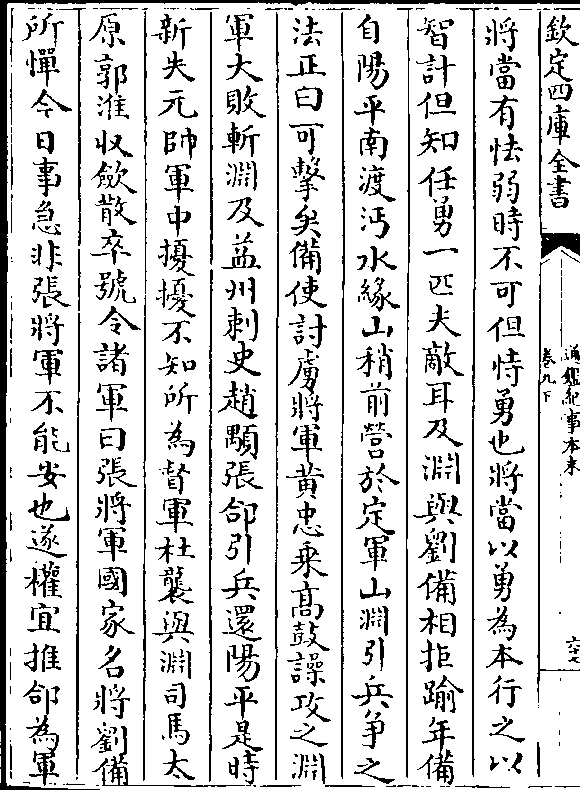 欽定四庫全書
通鑑紀事本末
卷九下
六十七
將當有怯弱時不可但恃勇也將當以勇為本行之以
智計但知任勇一匹夫敵耳及淵與劉備相拒踰年備
自陽平南渡沔水緣山稍前營於定軍山淵引兵爭之
法正曰可擊矣備使討虜將軍黃忠乘高鼓譟攻之淵
軍大敗斬淵及益州刺史趙顒張郃引兵還陽平是時
新失元帥軍中擾擾不知所為督軍杜襲與淵司馬太
原郭淮收斂散卒號令諸軍曰張將軍國家名將劉備
所憚今日事急非張將軍不能安也遂權宜推郃為軍